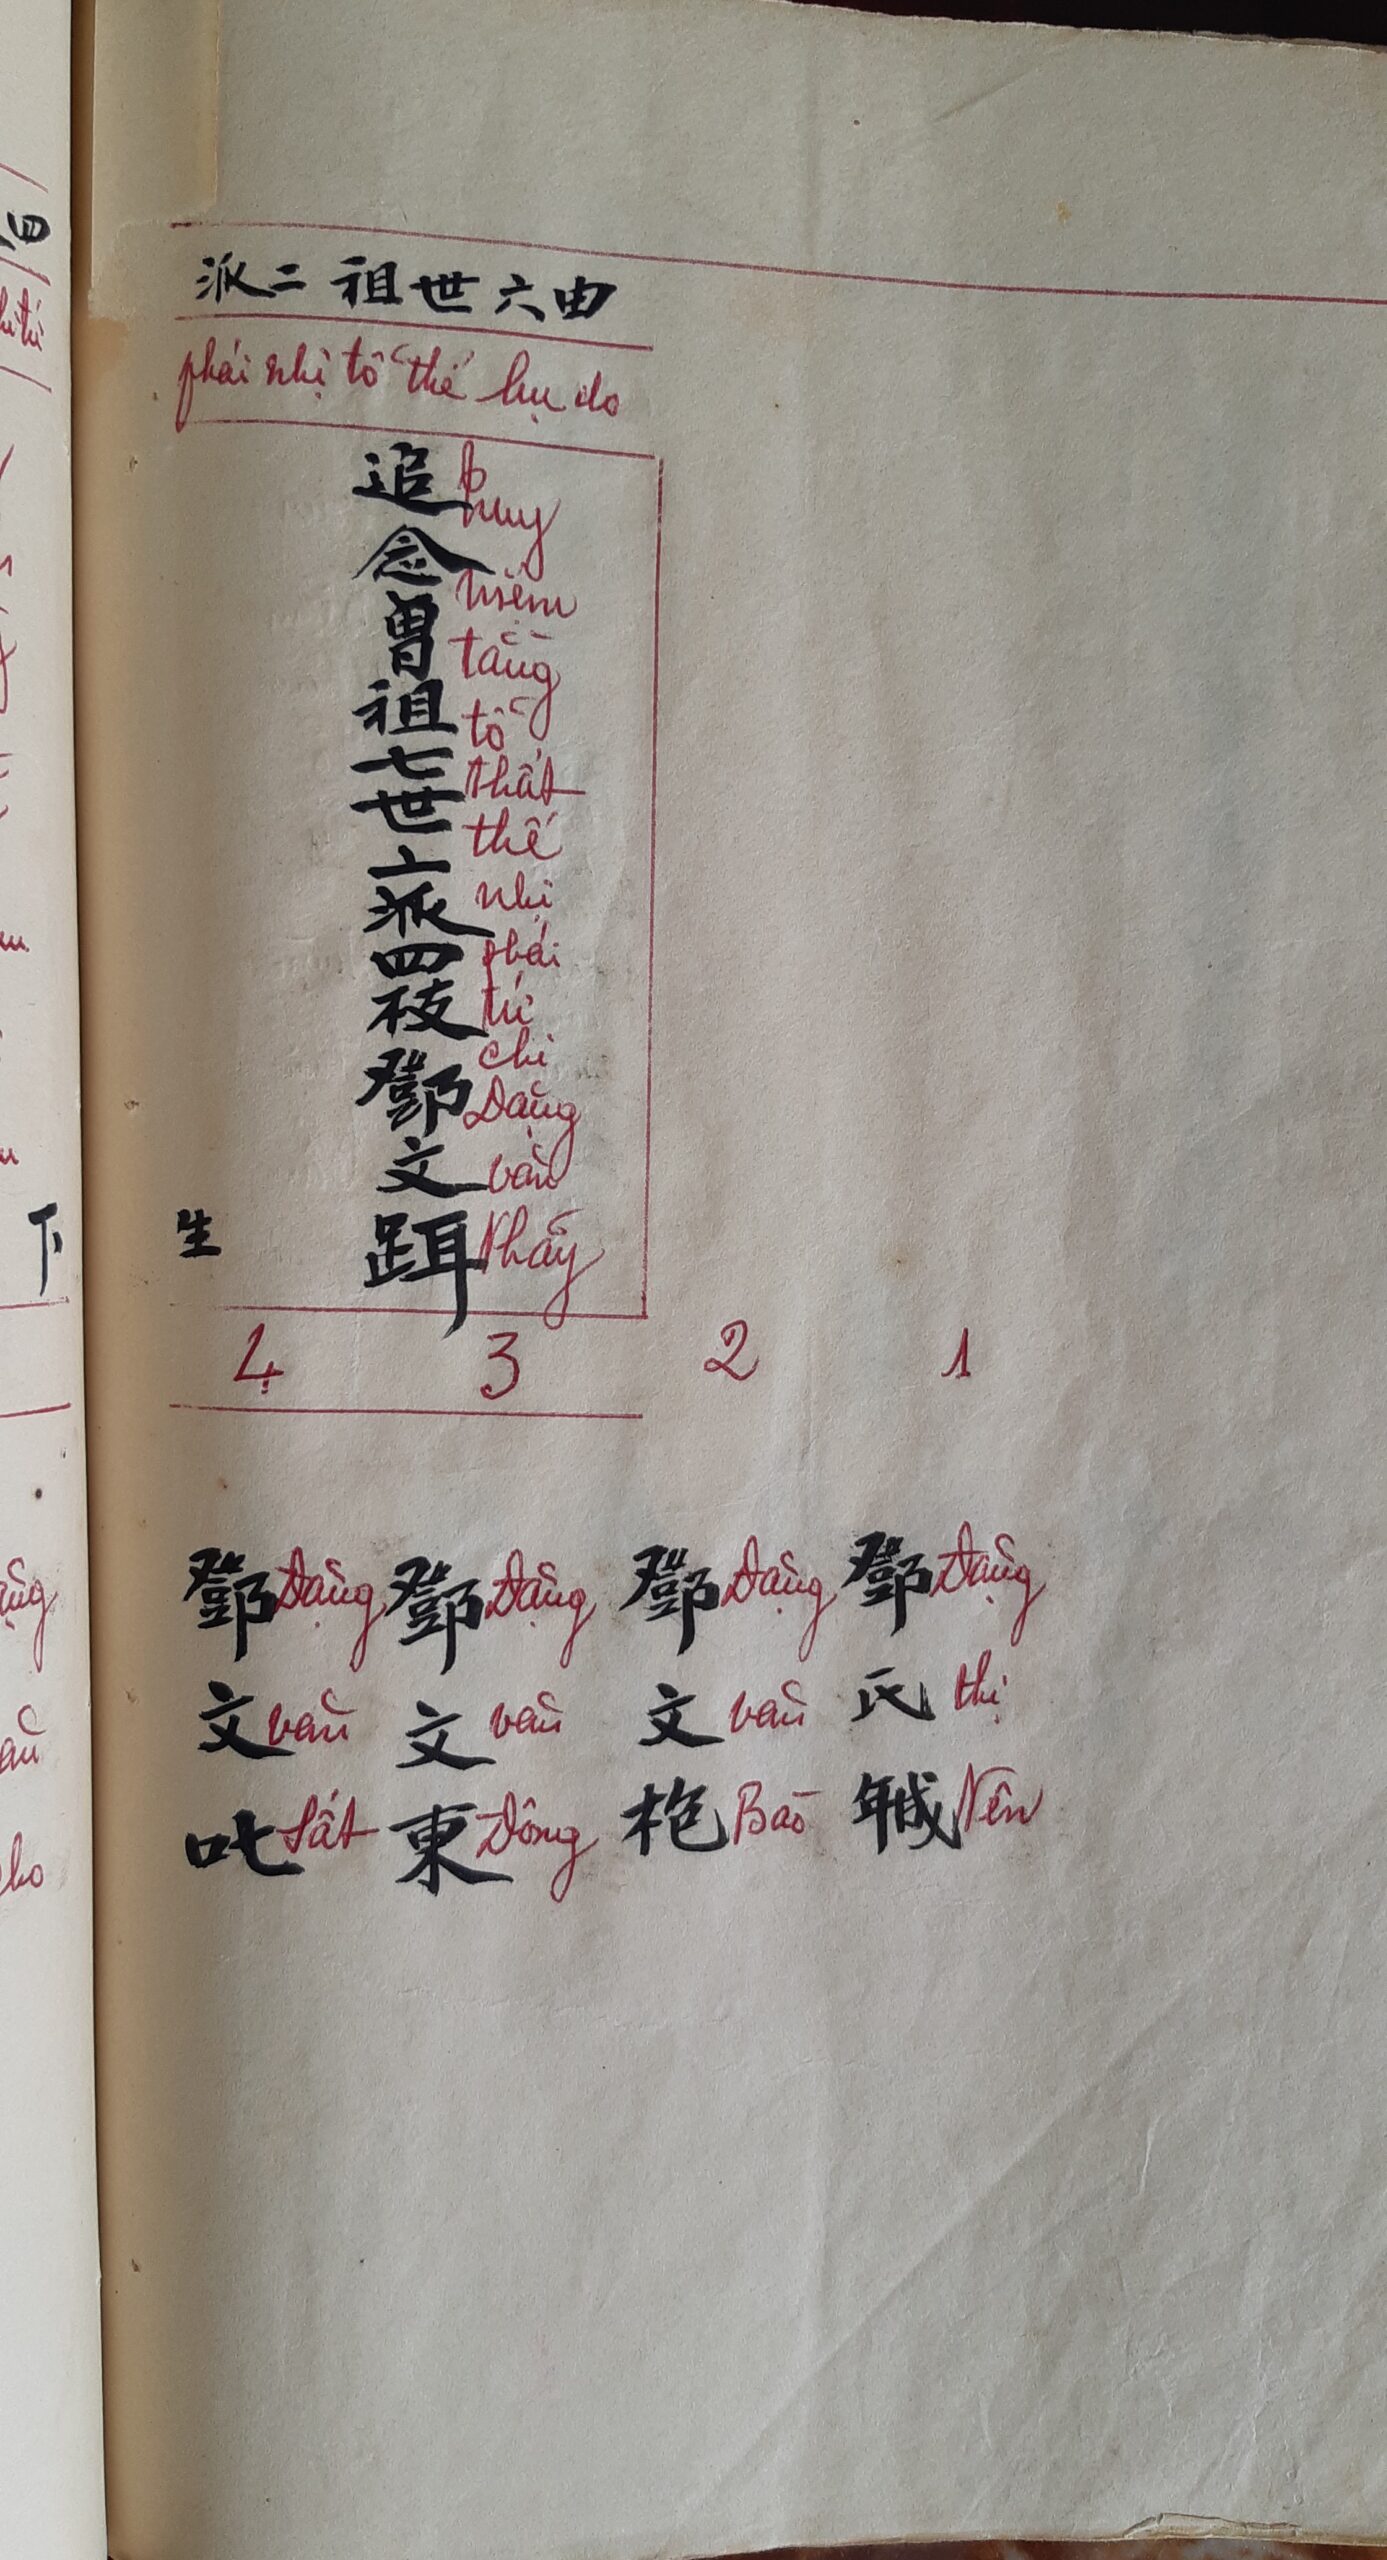 派二祖世六由
phái nhị tổ thế lục do
追念曾祖七世二派四枝鄧文
truy niệm tằng tổ thất thế nhị phái tứ chi Đặng văn Nhãy
生
4 3 2 1
鄧 Đặng 鄧 Đặng 鄧 Đặng 鄧 Đặng
文 văn 文 văn 文 văn 氏 thị
叱 Sất 東 Đông 枹 Bao Nên
下
四